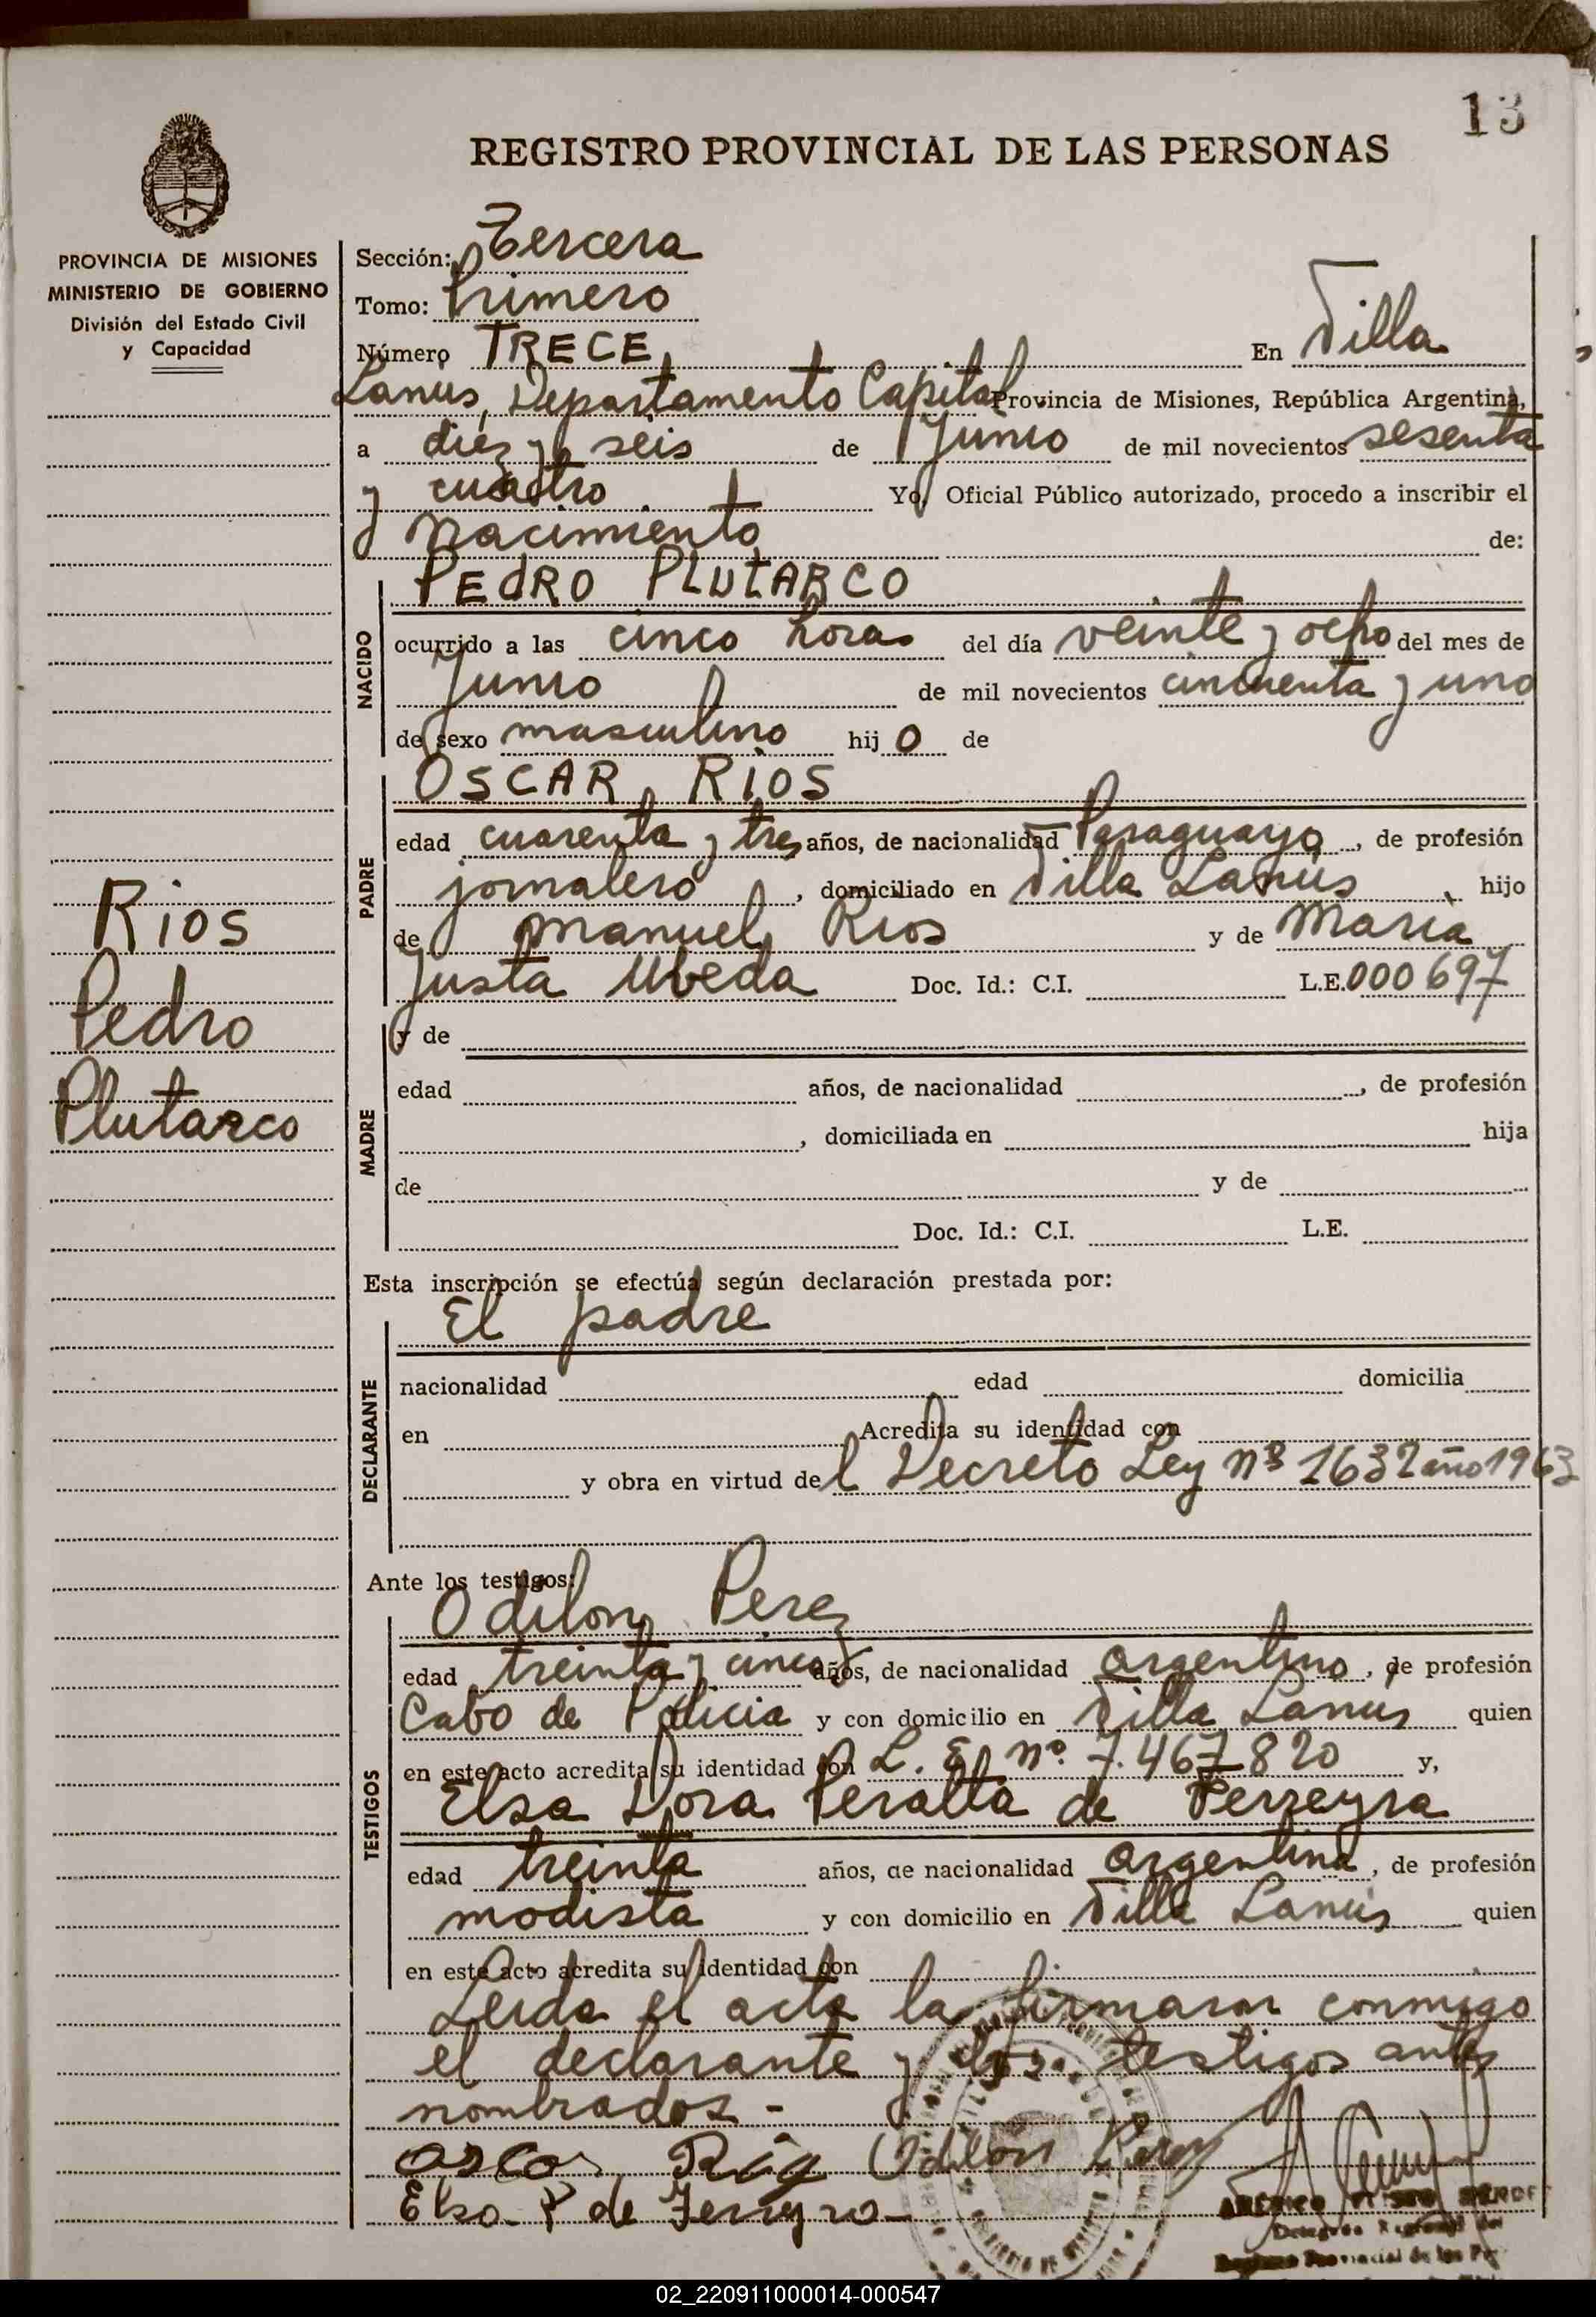 13
REGISTRO PROVINCIAL DE LAS PERSONAS
PROVINCIA DE MISIONES
MINISTERIO DE GOBIERNO
División del Estado Civil
y Capacidad
Sección: Tercera
Tomo: Primero
Número TRECE, En Villa
Lanús, Departamento Capital Provincia de Misiones, República Argentina,
a diez y seis de Junio de mil novecientos sesenta
y cuatro Yo, Oficial Público autorizado, procedo a inscribir el
nacimiento de:
NACIDO
PEDRO PLUTARCO
ocurrido a las cinco horas del día veinte y ocho del mes de
Junio de mil novecientos cincuenta y uno
de sexo masculino hij o de
PADRE
OSCAR RIOS
edad cuarenta y tres años, de nacionalidad Paraguayo, de profesión
jornalero, domiciliado en Villa Lanús hijo
de Manuel Rios y de Maria
Justa Ubeda Doc. Id.: C.I. L.E. 000697
MADRE
y de
edad años, de nacionalidad , de profesión
, domiciliada en hija
de y de
Doc. Id.: C.I. L.E.
Rios
Pedro
Plutarco
Esta inscripción se efectúa según declaración prestada por:
DECLARANTE
El padre
nacionalidad edad domicilia
en Acredita su identidad con
y obra en virtud del Decreto Ley nº 1632 año 1963
Ante los testigos:
TESTIGOS
Odilon Perez
edad treinta y cinco años, de nacionalidad argentino, de profesión
Cabo de Policia y con domicilio en Villa Lanús quien
en este acto acredita su identidad con L. E. nº. 7.467820 y,
Elsa Dora Peralta de Ferreyra
edad treinta años, de nacionalidad argentina, de profesión
modista y con domicilio en Villa Lanús quien
en este acto acredita su identidad con
Leida el acta la firmaron conmigo
el declarante y los testigos antes
nombrados -
Odilón Perez
Elsa P de Ferreyra
Delegado Regional del
Registro Provincial de las
02_220911000014-000547